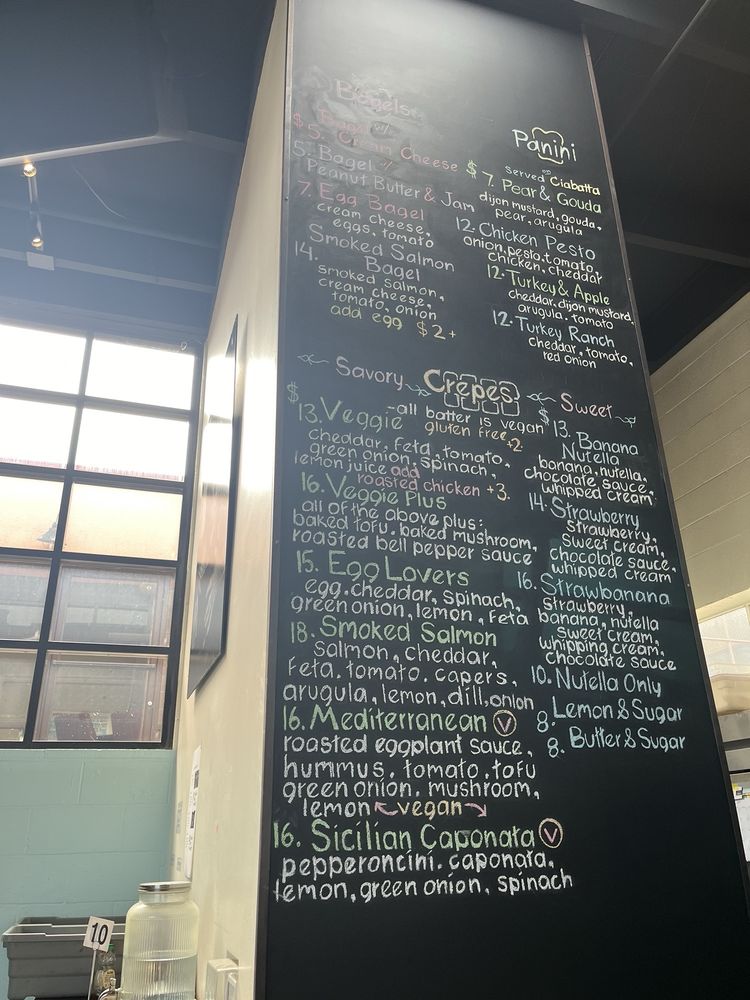 Bagels
Bagel w/
$5. Cream Cheese
5. Bagel w/
Peanut Butter & Jam
7. Egg Bagel
cream cheese,
eggs, tomato
Smoked Salmon
14. Bagel
smoked salmon,
cream cheese,
tomato, onion
add egg $2+
Panini
served on Ciabatta
$7. Pear & Gouda
dijon mustard, gouda,
pear, arugula
12. Chicken Pesto
onion, pesto, tomato,
chicken, cheddar
12. Turkey & Apple
cheddar, dijon mustard,
arugula, tomato
12. Turkey Ranch
cheddar, tomato,
red onion
Savory Crepes Sweet
-all batter is vegan
gluten free, 2.
$
13. Veggie
cheddar, feta, tomato,
green onion, spinach,
lemon juice add
roasted chicken +3.
16. Veggie Plus
all of the above plus:
baked tofu, baked mushroom,
roasted bell pepper sauce
15. Egg Lovers
egg, cheddar, spinach,
green onion, lemon, feta
18. Smoked Salmon
salmon, cheddar,
feta, tomato, capers,
arugula, lemon, dill, onion
16. Mediterranean V
roasted eggplant sauce,
hummus, tomato, tofu
green onion, mushroom,
lemon vegan
16. Sicilian Caponata V
pepperoncini, caponata,
lemon, green onion, spinach
$
13. Banana
Nutella
banana, nutella,
chocolate sauce,
whipped cream
14. Strawberry
strawberry,
sweet cream,
chocolate sauce,
whipped cream
16. Strawbanana
strawberry,
banana, nutella
sweet cream,
whipping cream,
chocolate sauce
10. Nutella Only
8. Lemon & Sugar
8. Butter & Sugar
10